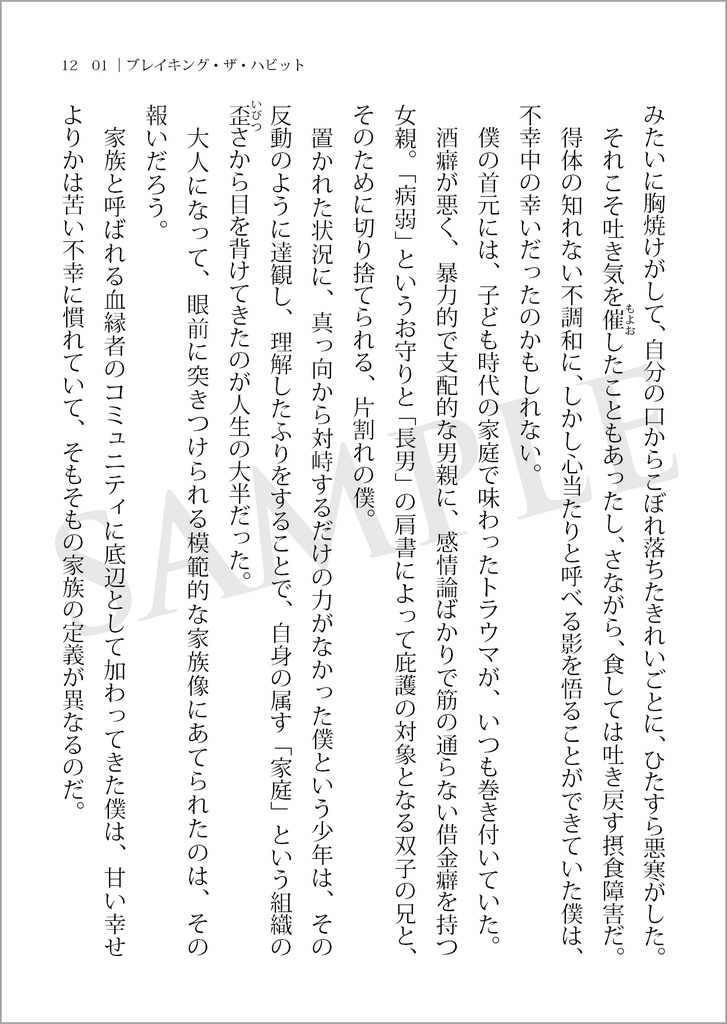 12　01｜ブレイキング・ザ・ハビット
みたいに胸焼けがして、自分の口からこぼれ落ちたきれいごとに、ひたすら悪寒がした。
それこそ吐き気を催したこともあったし、さながら、食しては吐き戻す摂食障害だ。
もよお
得体の知れない不調和に、しかし心当たりと呼べる影を悟ることができていた僕は、
不幸中の幸いだったのかもしれない。
僕の首元には、子ども時代の家庭で味わったトラウマが、いつも巻き付いていた。
酒癖が悪く、暴力的で支配的な男親に、感情論ばかりで筋の通らない借金癖を持つ
女親。「病弱」というお守りと「長男」の肩書によって庇護の対象となる双子の兄と、
そのために切り捨てられる、片割れの僕。
置かれた状況に、真っ向から対峙するだけの力がなかった僕という少年は、その
反動のように達観し、理解したふりをすることで、自身の属す「家庭」という組織の
歪さから目を背けてきたのが人生の大半だった。
いびつ
大人になって、眼前に突きつけられる模範的な家族像にあてられたのは、その
報いだろう。
家族と呼ばれる血縁者のコミュニティに底辺として加わってきた僕は、甘い幸せ
よりかは苦い不幸に慣れていて、そもそもの家族の定義が異なるのだ。
SAMPLE